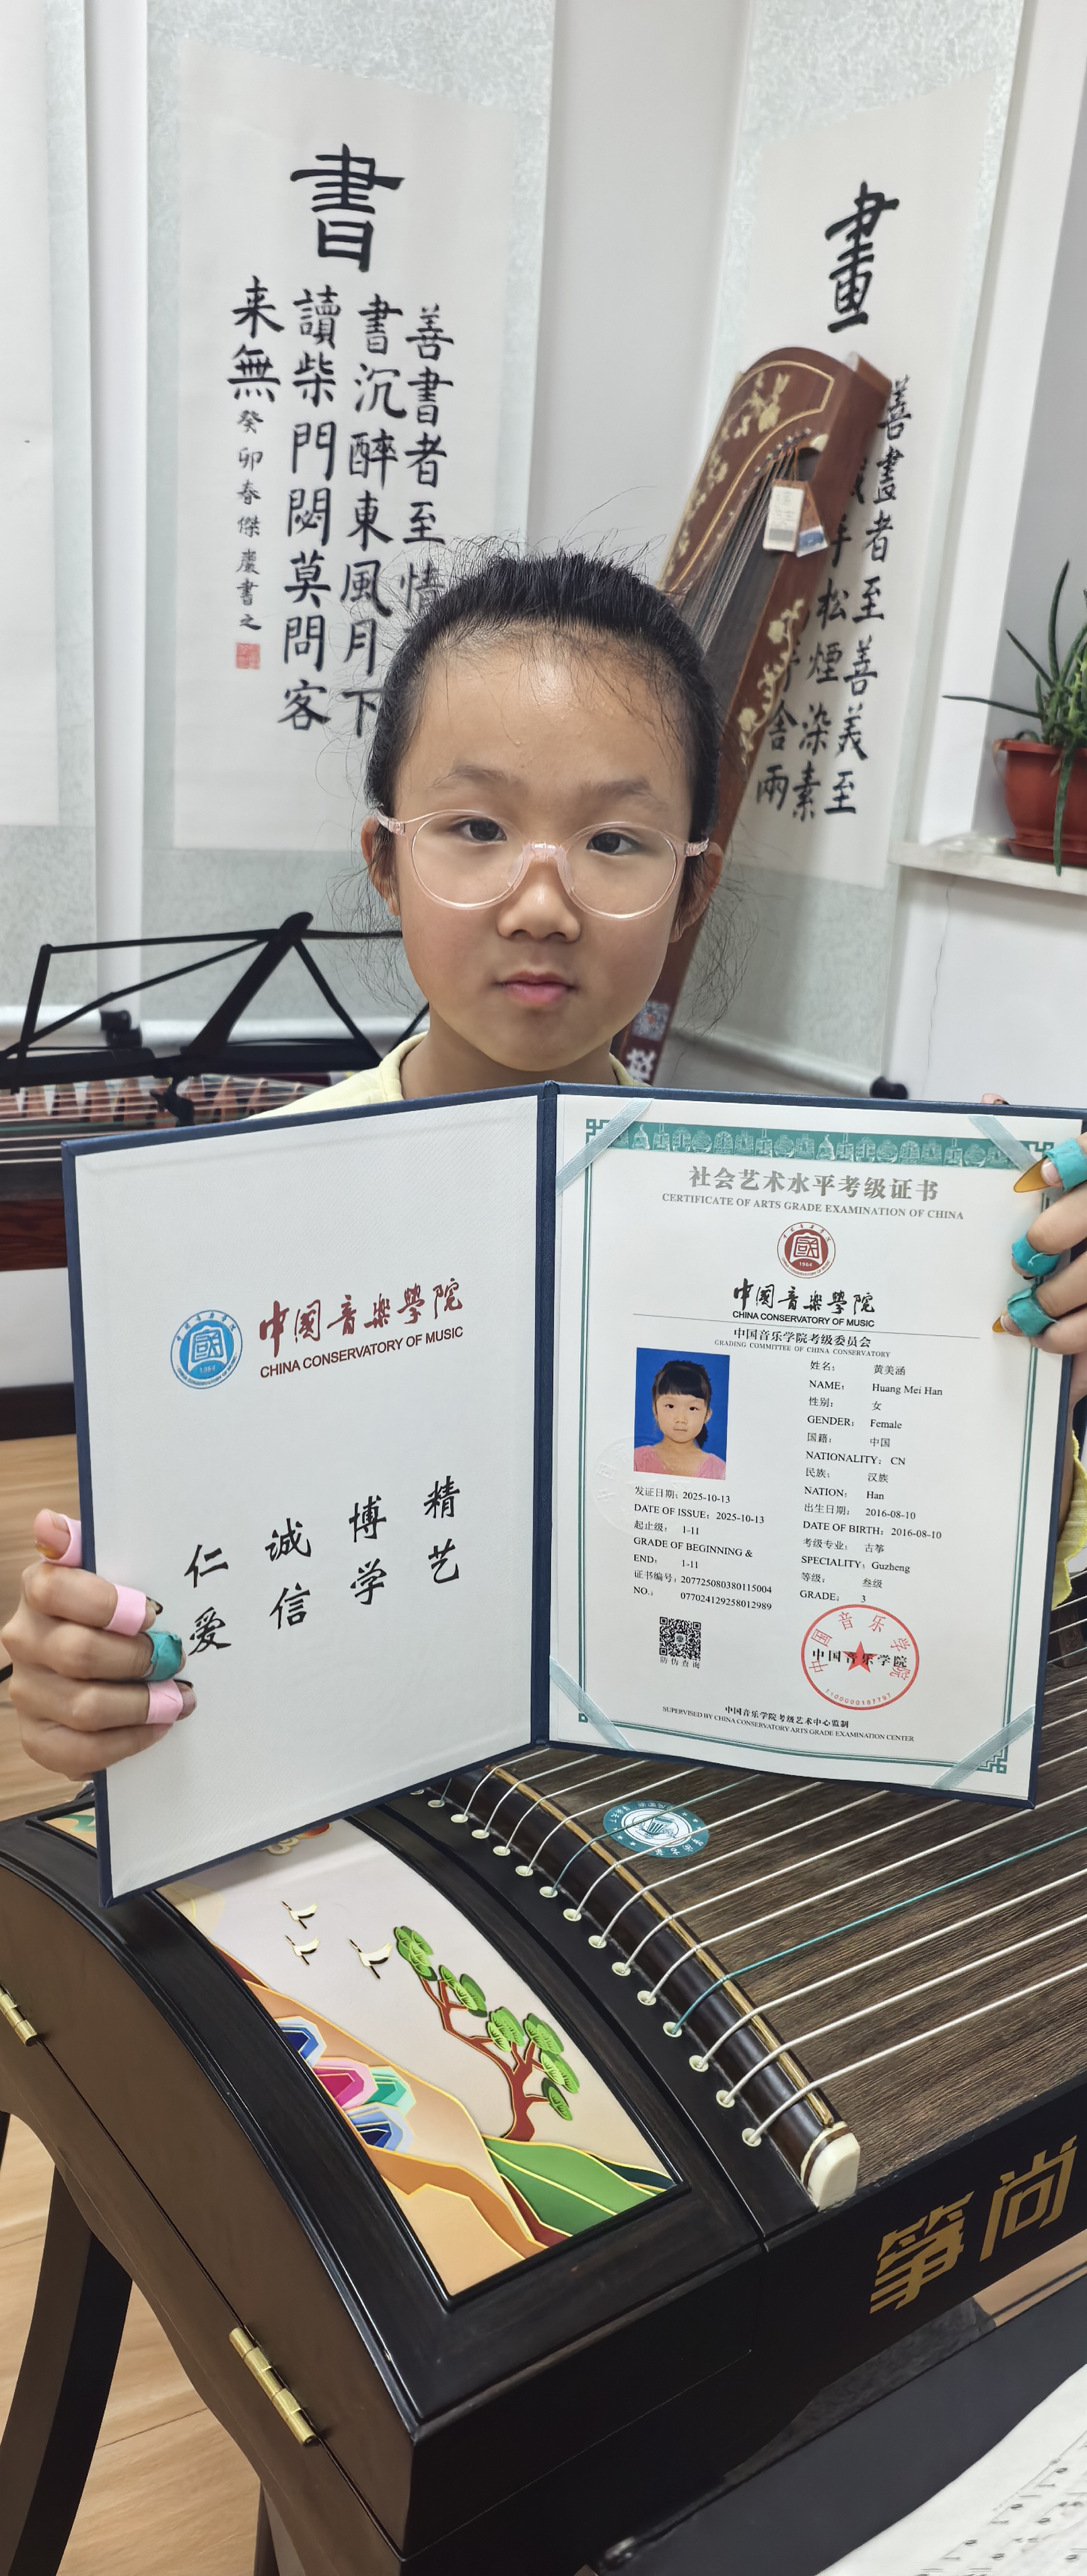 書
善書者至情
書沉醉東風月下
讀柴門閟莫問客
来無
癸卯春傑慶書之
畫
善畫者至善美至
手松煙染素
舍兩
中国音樂學院
CHINA CONSERVATORY OF MUSIC
1964
精艺
博学
诚信
仁爱
社会艺术水平考级证书
CERTIFICATE OF ARTS GRADE EXAMINATION OF CHINA
1964
中国音樂學院
CHINA CONSERVATORY OF MUSIC
中国音乐学院考级委员会
GRADING COMMITTEE OF CHINA CONSERVATORY
姓名： 黄美涵
NAME： Huang Mei Han
性别： 女
GENDER： Female
国籍： 中国
NATIONALITY： CN
民族： 汉族
NATION： Han
出生日期： 2016-08-10
DATE OF BIRTH：2016-08-10
考级专业： 古筝
SPECIALITY：Guzheng
等级： 叁级
GRADE： 3
发证日期：2025-10-13
DATE OF ISSUE：2025-10-13
起止级： 1-11
GRADE OF BEGINNING &
END： 1-11
证书编号：207725080380115004
NO.： 077024129258012989
防伪查询
中国音乐学院
中国音乐学院
1100000187797
中国音乐学院考级艺术中心监制
SUPERVISED BY CHINA CONSERVATORY ARTS GRADE EXAMINATION CENTER
筝尚